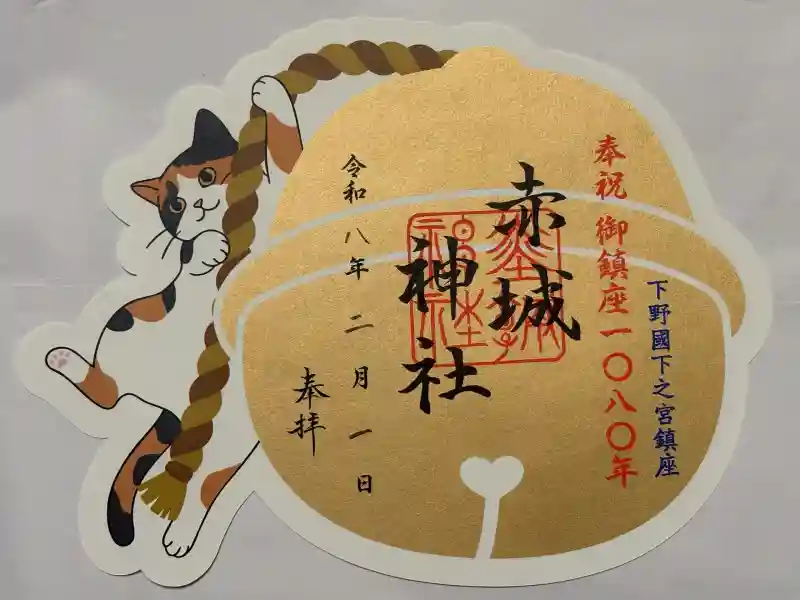 下野國下之宮鎮座
奉祝 御鎮座一〇八〇年
赤城
神社
令和八年二月一日
奉拝